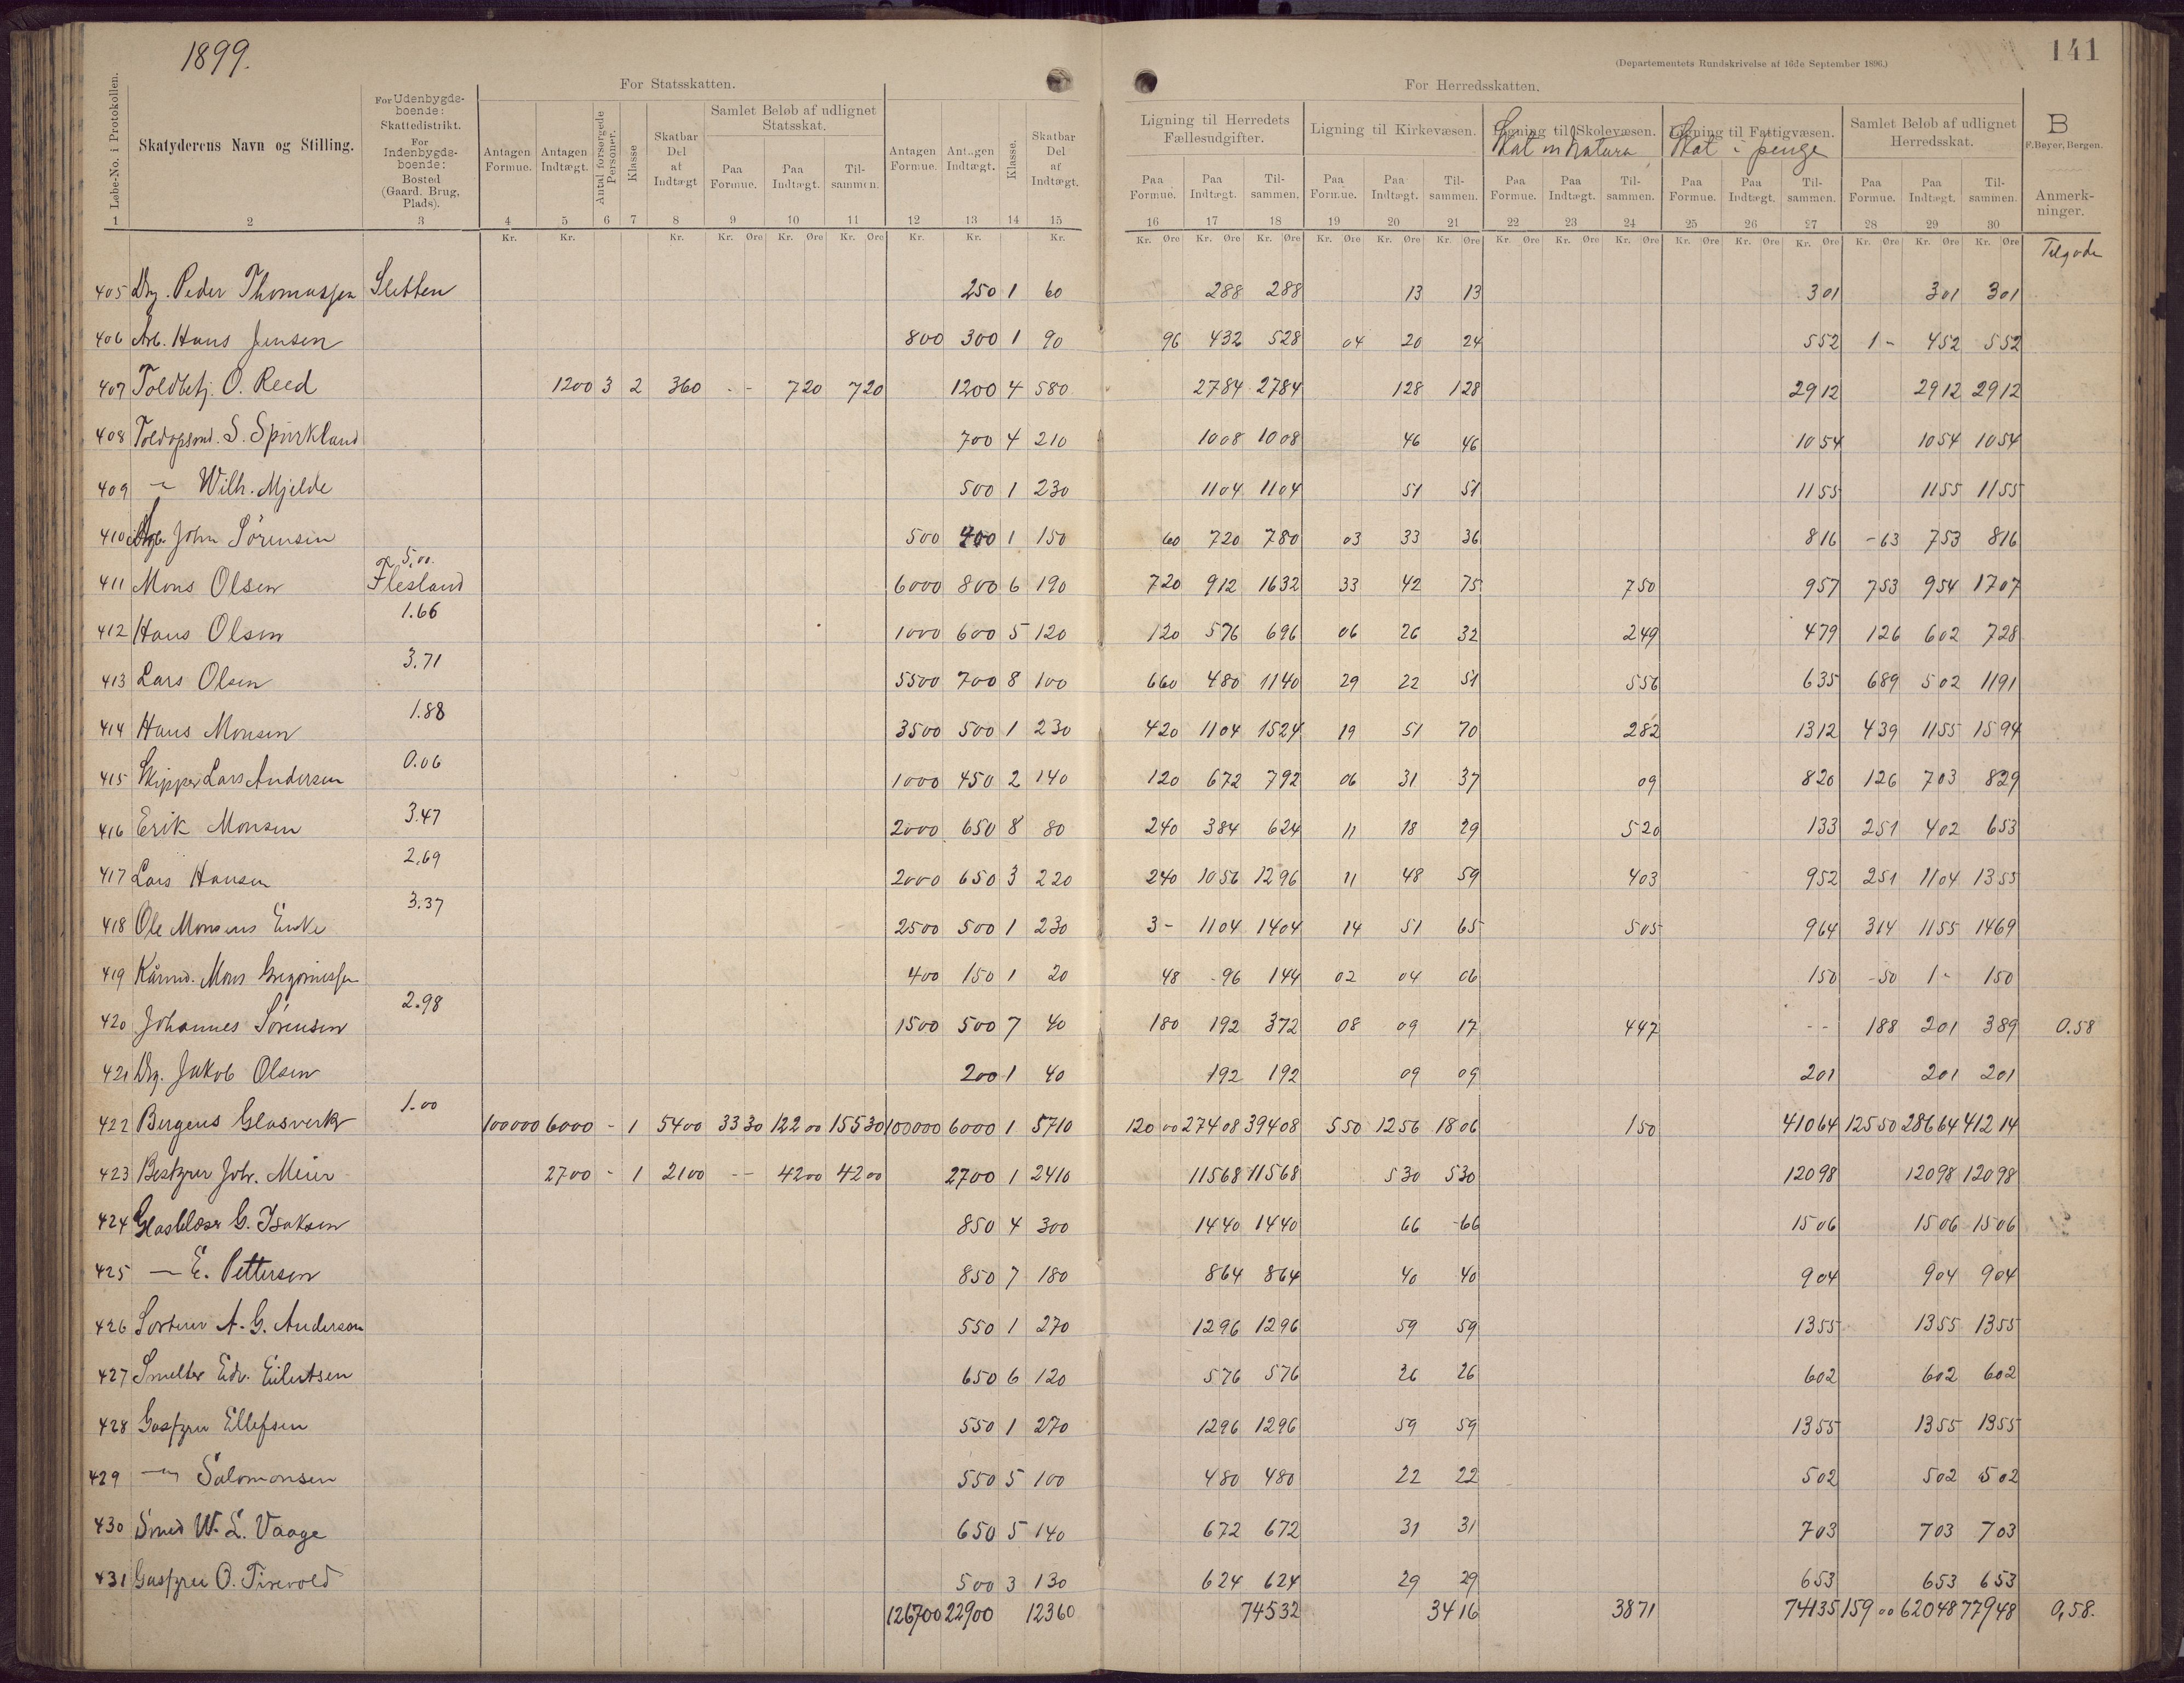 1899.
(Departementets Rundskrivelse af 16de September 1896.)
141
For Statsskatten.
For Herredsskatten.
Løbe-No. i Protokollen.
Skatyderens Navn og Stilling.
For Udenbygdsboende: Skattedistrikt. For Indenbygdsboende: Bosted (Gaard, Brug, Plads).
Antagen Formue.
Antagen Indtægt.
Antal forsørgede Personer.
Klasse
Skatbar Del af Indtægt
Samlet Beløb af udlignet Statsskat.
Paa Formue. Paa Indtægt. Tilsammen.
Antagen Formue.
Antagen Indtægt.
Klasse.
Skatbar Del af Indtægt.
Ligning til Herredets Fællesudgifter.
Paa Formue. Paa Indtægt. Tilsammen.
Ligning til Kirkevæsen.
Paa Formue. Paa Indtægt. Tilsammen.
Ligning til Skolevæsen.
Skat in Natura
Paa Formue. Paa Indtægt. Tilsammen.
Ligning til Fattigvæsen.
Skat i penge
Paa Formue. Paa Indtægt. Tilsammen.
Samlet Beløb af udlignet Herredsskat.
Paa Formue. Paa Indtægt. Tilsammen.
B
F. Beyer, Bergen.
Anmerkninger.
1 2 3 4 5 6 7 8 9 10 11 12 13 14 15 16 17 18 19 20 21 22 23 24 25 26 27 28 29 30
Kr. Kr. Kr. Kr. Øre Kr. Øre Kr. Øre Kr. Kr. Kr. Kr. Øre Kr. Øre Kr. Øre Kr. Øre Kr. Øre Kr. Øre Kr. Øre Kr. Øre Kr. Øre Kr. Øre Kr. Øre Kr. Øre Kr. Øre Kr. Øre Kr. Øre
Tilgode
405 Peder Thomassen Sletten 250 1 60 288 288 13 13 301 301 301
406 Arb. Hans Jensen 800 300 1 90 96 432 528 04 20 24 552 1 - 452 552
407 Toldbetj. O. Reed 1200 3 2 360 - - 720 720 1200 4 580 2784 2784 128 128 2912 2912 2912
408 Toldopsmd. S. Spurkland 700 4 210 1008 1008 46 46 1054 1054 1054
409 - Wilh. Mjelde 500 1 230 1104 1104 51 51 1155 1155 1155
410 John Sörensen 500 400 1 150 60 720 780 03 33 36 816 -63 753 816
5,00.
411 Mons Olsen Flesland 6000 800 6 190 720 912 1632 33 42 75 750 957 753 954 1707
1.66
412 Hans Olsen 1000 600 5 120 120 576 696 06 26 32 249 479 126 602 728
3.71
413 Lars Olsen 5500 700 8 100 660 480 1140 29 22 51 556 635 689 502 1191
1.88
414 Hans Monsen 3500 500 1 230 420 1104 1524 19 51 70 282 1312 439 1155 1594
0.06
415 Skipper Lars Andersen 1000 450 2 140 120 672 792 06 31 37 09 820 126 703 829
3.47
416 Erik Monsen 2000 650 8 80 240 384 624 11 18 29 520 133 251 402 653
2.69
417 Lars Hansen 2000 650 3 220 240 1056 1296 11 48 59 403 952 251 1104 1355
3.37
418 Ole Monsens Enke 2500 500 1 230 3 - 1104 1404 14 51 65 505 964 314 1155 1469
419 Kårmd. Mons Gregoriussen 400 150 1 20 48 -96 144 02 04 06 150 -50 1 - 150
2.98
420 Johannes Sörensen 1500 500 7 40 180 192 372 08 09 17 447 - - 188 201 389 0.58
421 Jakob Olsen 200 1 40 192 192 09 09 201 201 201
1.00
422 Bergens Glasverk 100000 6000 - 1 5400 33 30 122 00 155 30 100000 6000 1 5710 120 00 274 08 394 08 550 1256 1806 150 410 64 125 50 286 64 412 14
423 Bestyrer Joh. Meier 2700 - 1 2100 - - 42 00 42 00 2700 1 2410 115 68 115 68 530 530 120 98 120 98 120 98
424 Glasblæser G. Isaksen 850 4 300 1440 1440 66 -66 1506 1506 1506
425 - E. Pettersen 850 7 180 864 864 40 40 904 904 904
426 Sorterer A. G. Anderson 550 1 270 1296 1296 59 59 1355 1355 1355
427 Smelter Edv. Eilertsen 650 6 120 576 576 26 26 602 602 602
428 Gasfyrer Ellefsen 550 1 270 1296 1296 59 59 1355 1355 1355
429 - Salomonsen 550 5 100 480 480 22 22 502 502 502
430 Smed W. L. Vaage 650 5 140 672 672 31 31 703 703 703
431 Gasfyrer O. Tirevold 500 3 130 624 624 29 29 653 653 653
126700 22900 12360 745 32 34 16 38 71 741 35 159 00 620 48 779 48 0,58.